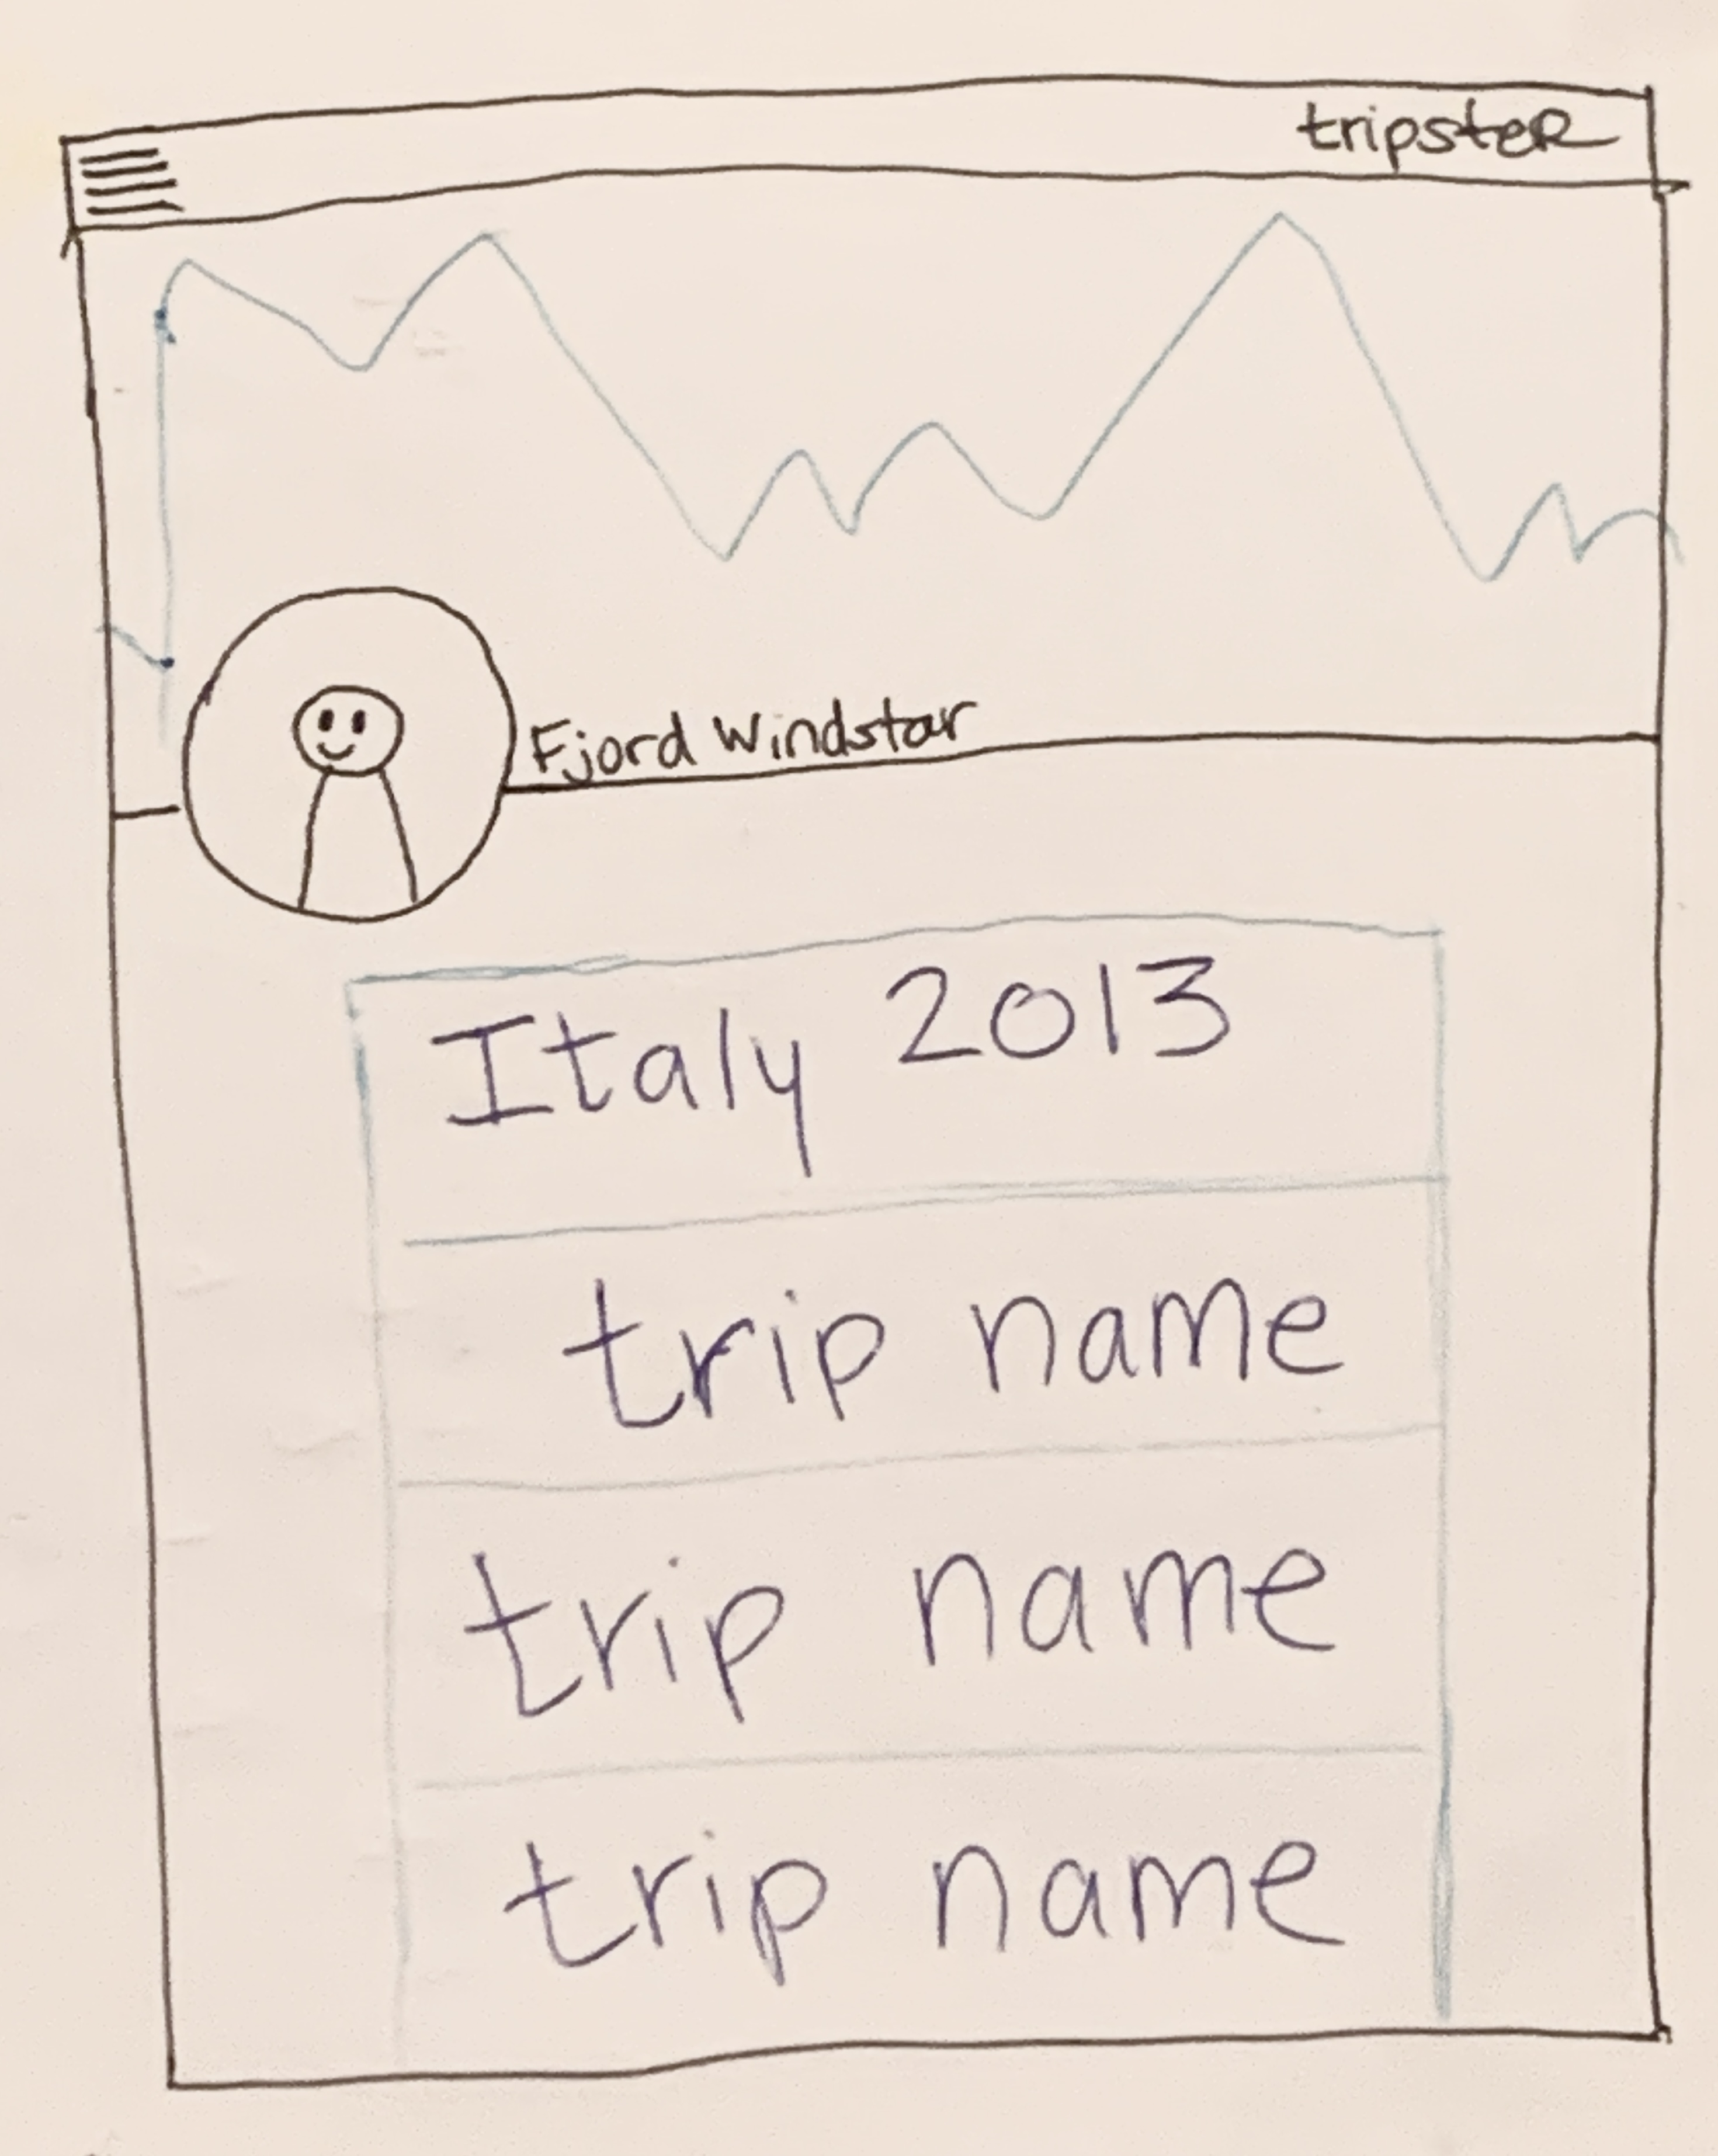 tripster
Fjord Windstar
Italy 2013
trip name
trip name
trip name